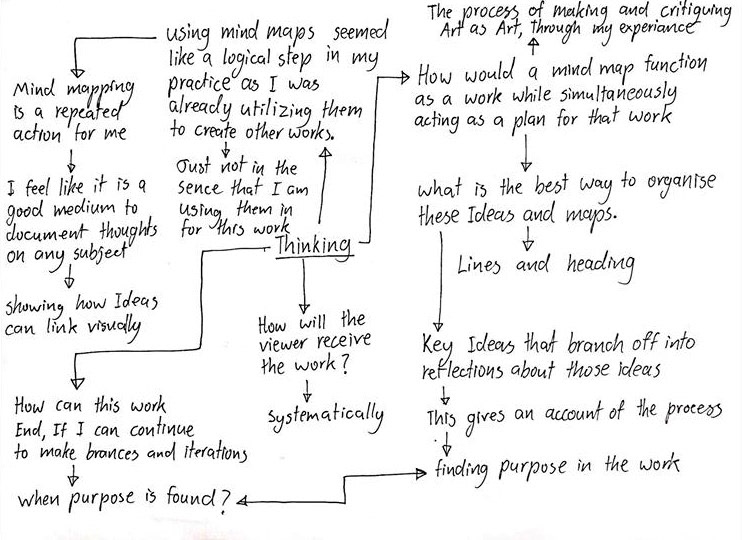 The process of making and critiquing
Art as Art, Through my experiance
using mind maps seemed
like a logical step in my
practice as I was
already utilizing them
to create other works.
Just not in the
sence that I am
using them in
for this work
Mind mapping
is a repeated
action for me
I feel like it is a
good medium to
document thoughts
on any subject
showing how Ideas
can link visually
Thinking
How would a mind map function
as a work while simultaneously
acting as a plan for that work
what is the best way to organise
these Ideas and maps.
Lines and heading
Key Ideas that branch off into
reflections about those ideas
This gives an account of the process
finding purpose in the work
How will the
viewer receive
the work?
Systematically
How can this work
End, If I can continue
to make brances and iterations
when purpose is found?